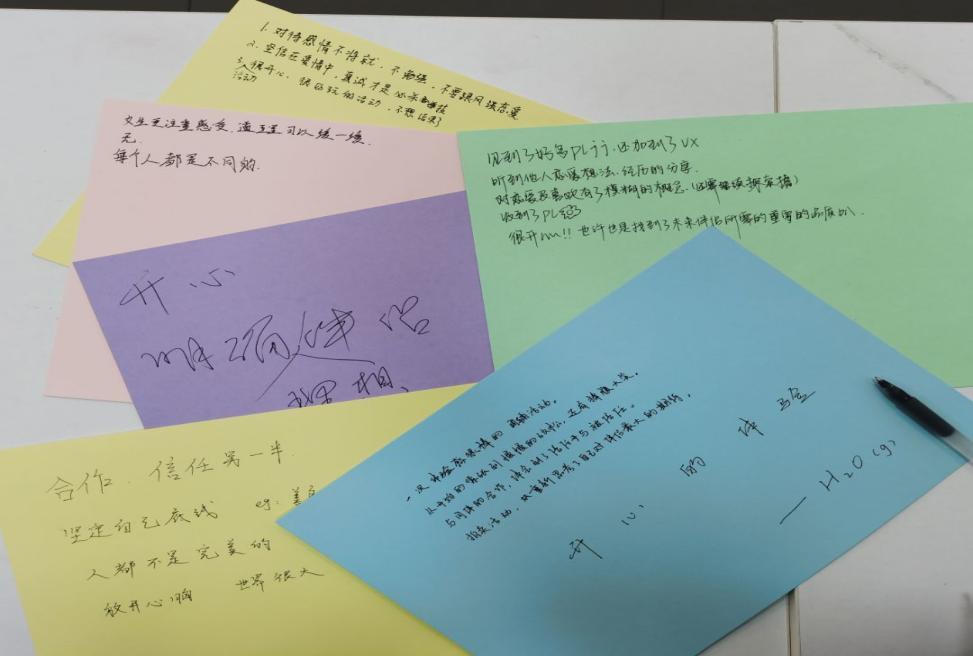 1. 对待感情不将就，不勉强，不要跟风谈恋爱
2. 坚信在爱情中，真诚才是必杀技
3. 很开心，很好玩的活动，不想结束
活动
女生更注重感受，直可以缓一缓
无.
每个人都是不同的.
见到了好多PLjj，还加到了VX
听到他人恋爱想法、经历的分享.
对恋爱及喜欢有了模糊的概念.
收到了PL
很开心!! 也许也是找到了未来伴侣所需的重要的品质叭.
开心
明确伴侣
理想.
合作、信任另一半.
坚定自己底线 eg:
人都不是完美的
放开心胸 世界很大
一次
从开始的
与同伴的合作，体会到了信任与被信任。
活动，
开心的体验
— H2O(g)